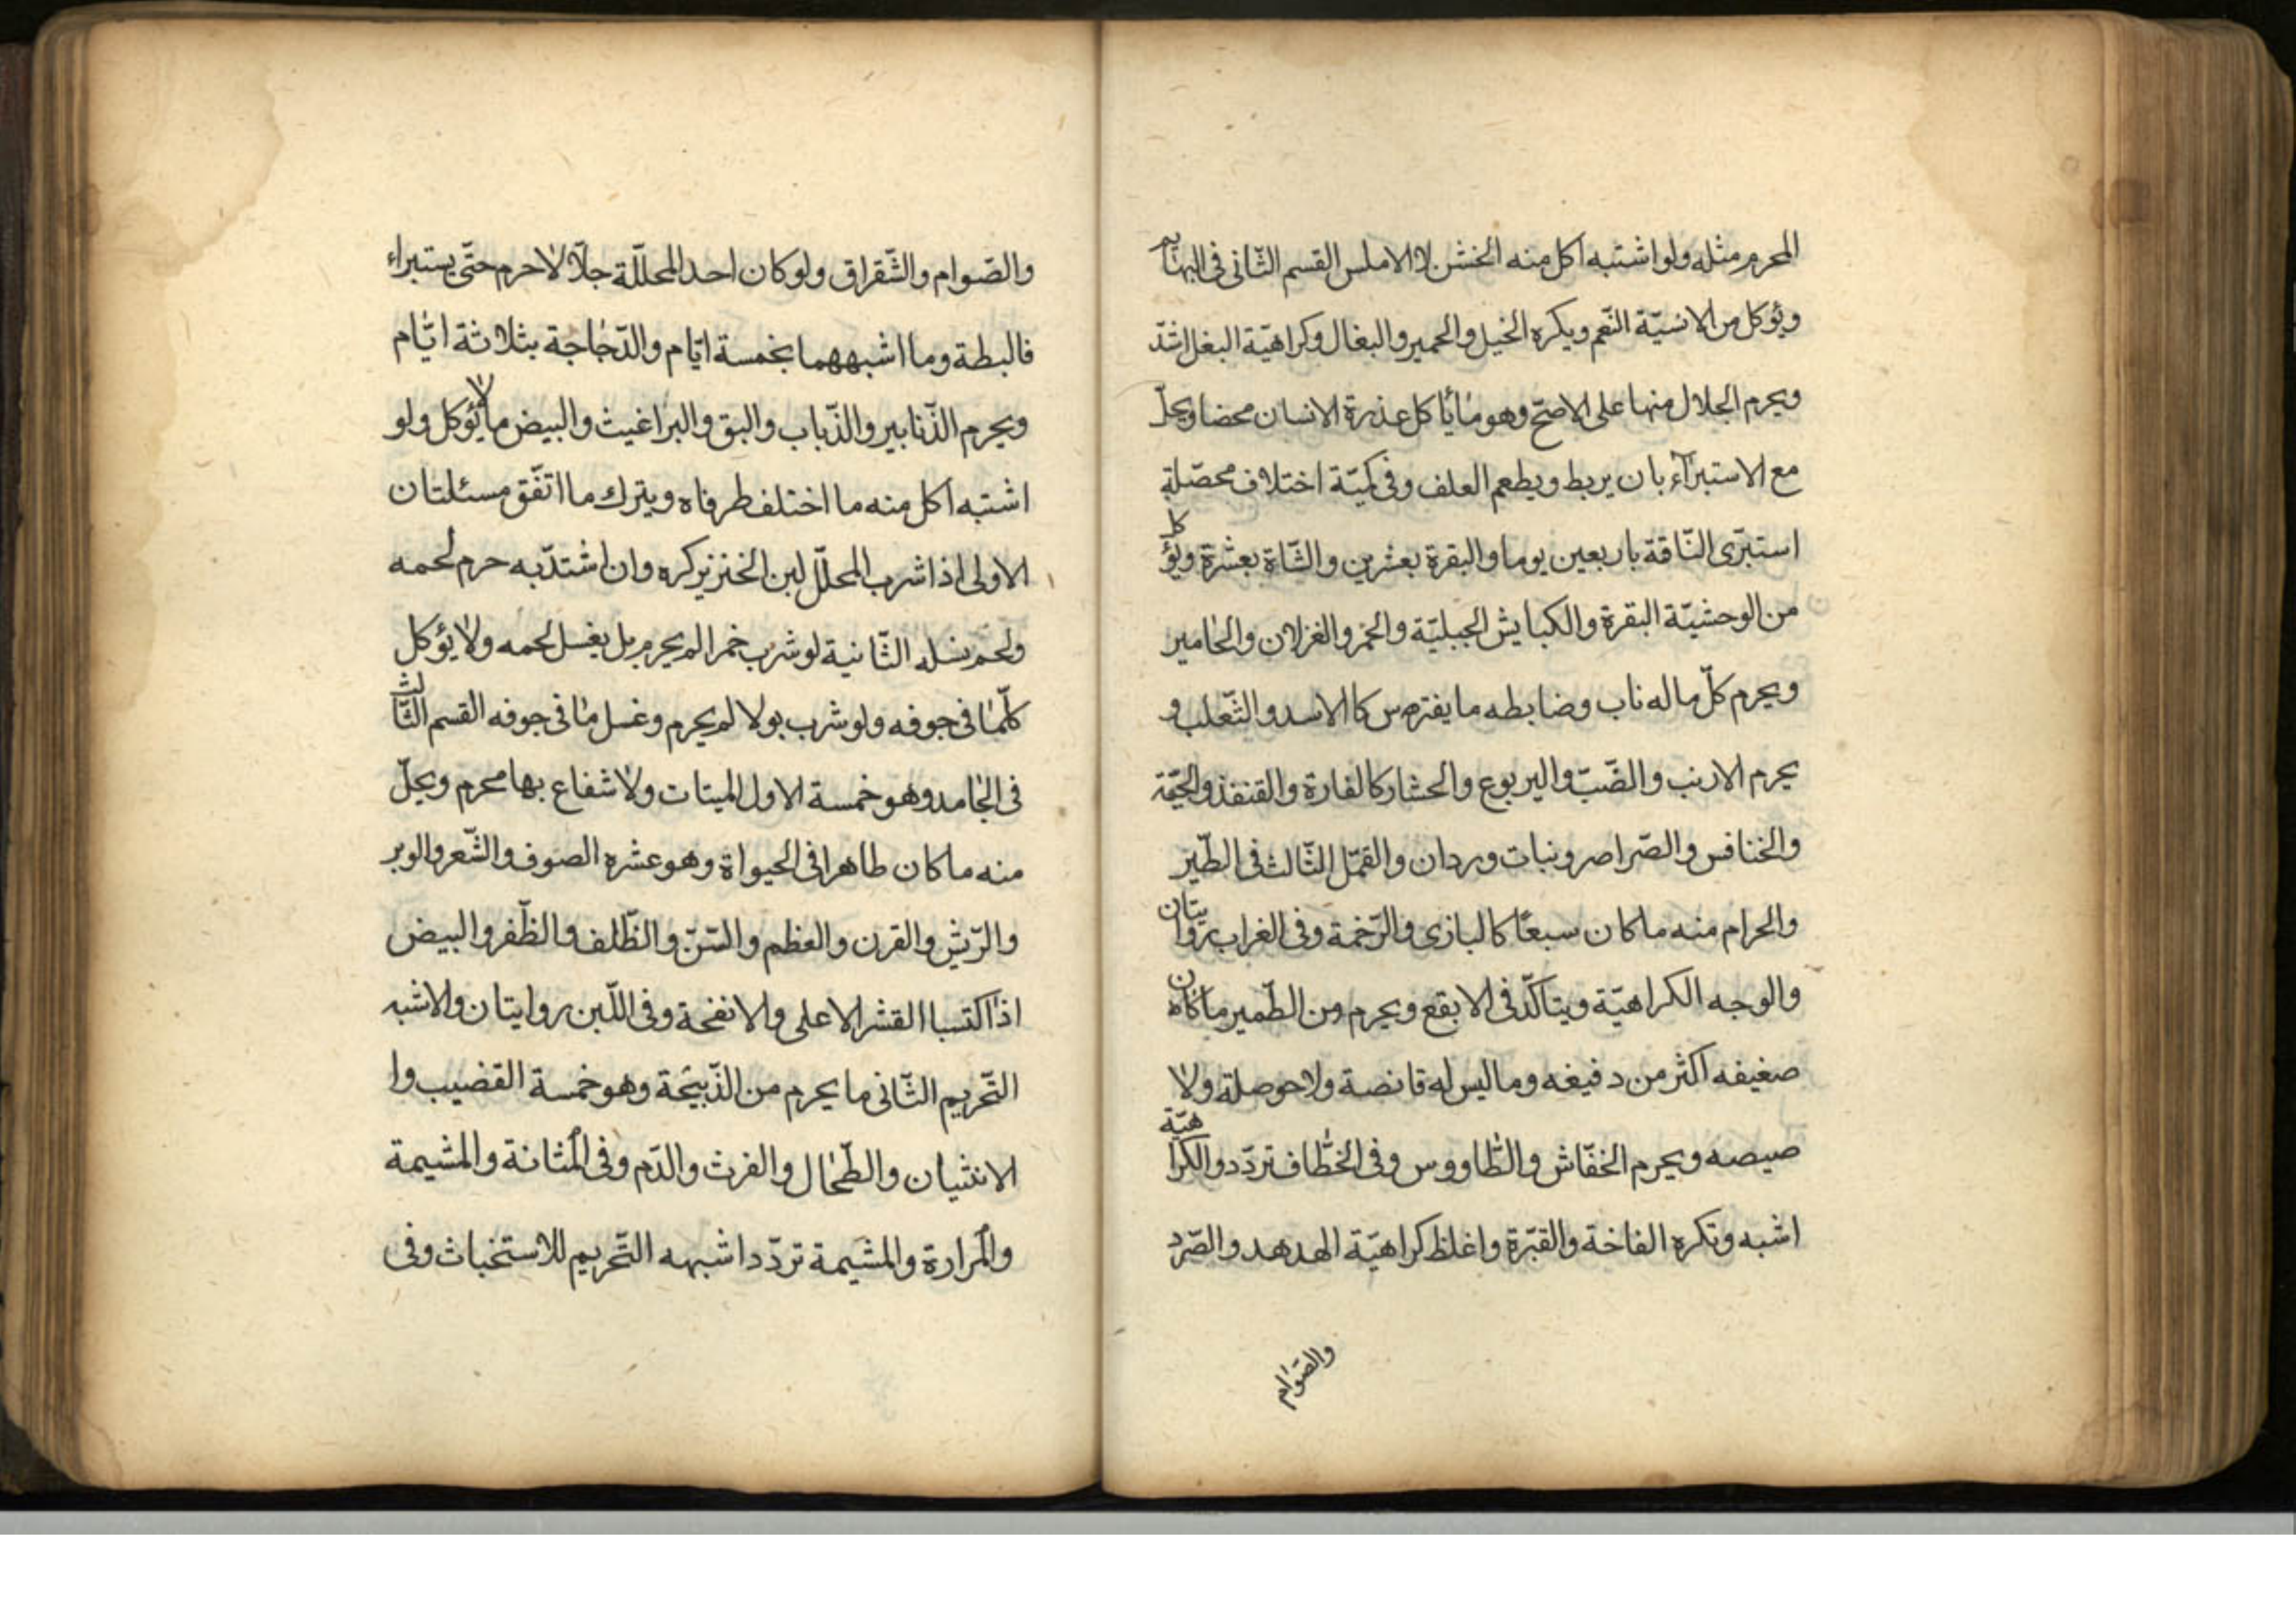 المحرم مثله ولو اشتبه اكل منه الخشن لا الاملس القسم الثّانى فى البهايم
ويؤكل من الانسيّة النّعم ويكره الخيل والحمير والبغال وكراهيّة البغل اشدّ
ويحرم الجلال منها على الاصحّ وهو ما يأكل عذرة الانسان محضا ويحلّ
مع الاستبرآء بان يربط ويطعم العلف وفى كميّة اختلاف محصّلة
استبرى النّاقة باربعين يوما والبقرة بعشرين والشّاة بعشرة ويؤكل
من الوحشيّة البقرة والكبايش الجبليّة والحمر والغزلان واليحامير
ويحرم كلّ ما له ناب وضابطه ما يفترس كا الاسد والثّعلب و
يحرم الارنب والضّبّ واليربوع والحشار كالفارة والقنفذ والحيّة
والخنافس والصّراصر وبنات وردان والقمّل الثّالث فى الطّير
والحرام منه ما كان سبعًا كالبازى والرّخمة وفى الغراب روايتان
والوجه الكراهيّة ويتاكّد فى الابقع ويحرم من الطّمير ما كان
صغيفه اكثر من دفيغه وما ليس له قانصة ولا حوصلة ولا
صيصه ويحرم الخفّاش والطّاووس وفى الخطّاف تردّد والكراهيّة
اشبه وتكره الفاختة والقبّرة واغلظ كراهيّة الهدهد والصّرد
والصّوام
والصّوام والشّقراق ولو كان احد المحلّلة جلاّلا حرم حتّى يستبراء
فالبطة وما اشبههما بخمسة ايّام والدّجاجة بثلاثة ايّام
ويحرم الذّنابير والذّباب والبق والبراغيث والبيض ما لا يؤكل ولو
اشتبه اكل منه ما اختلف طرفاه ويترك ما اتّفق مسئلتان
الاولى اذا شرب المحلّل لبن الخنزير كره وان اشتدّ به حرم لحمه
ولحم نسله الثّانية لو شرب خمرا لم يحرم بل يغسل لحمه ولا يؤكل
كلّما فى جوفه ولو شرب بولا لم يحرم وغسل ما فى جوفه القسم الثّالث
فى الجامد وهو خمسة الاول الميتات ولا شفاع بها محرم ويحلّ
منه ما كان طاهرا فى الحيواة وهو عشره الصوف والشّعر والوبر
والرّيش والقرن والعظم والسّنّ والظّلف والظّفر والبيض
اذا اكتسبا القشر الاعلى والانفحة وفى اللّبن روايتان والاشبه
التّحريم الثّانى ما يحرم من الذّبيحة وهو خمسة القضيب وا
الانثيان والطّحال والفرث والدّم وفى المثانة والمشيمة
والمرارة والمشيمة تردّد اشبهه التّحريم للاستخباث وفى